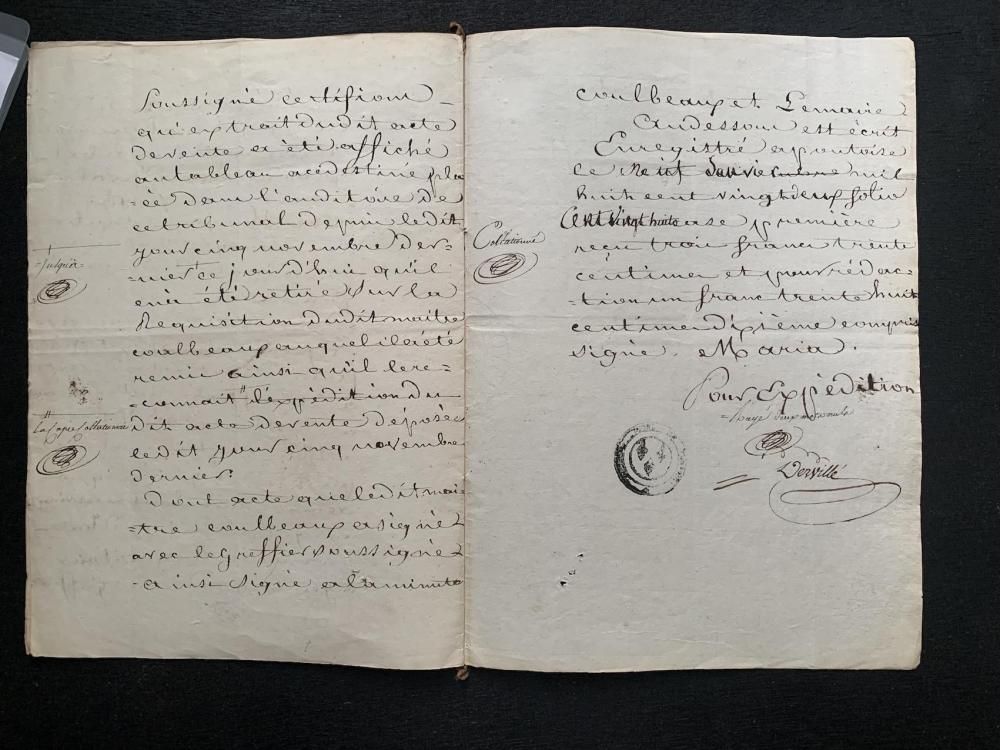 Soussigné certifions
qu'extrait dudit acte
de vente a été affiché
au tableau a ce destiné pla
=cé dans l'auditoire de
ce tribunal depuis le dit
jour cinq novembre der-
=nier ce jourd'hui qu'il
en a été retiré sur la
Requisition dudit maitre
coulbeaux auquel il a été
remis ainsi qu'il le re-
=connait l'expédition du
dit acte de vente déposée
le dit jour cinq novembre
dernier.
Dont acte que le dit mai-
=tre coulbeaux a signé
avec le Greffier soussigné
ainsi signé a la minute
=Jusqu'a=
La Copie Collationnée
coulbeaux et Lemaire
Au dessous est écrit
Enregistré a pontoise
ce neuf mil
huit cent vingt deux folio
Cent vingt huit case première
reçu trois francs trente
centimes et pour rédac
=tion un franc trente huit
centimes dixième compris
signé. Maria.
Collationné
Pour Expédition
Rayé deux mots nuls
Derville